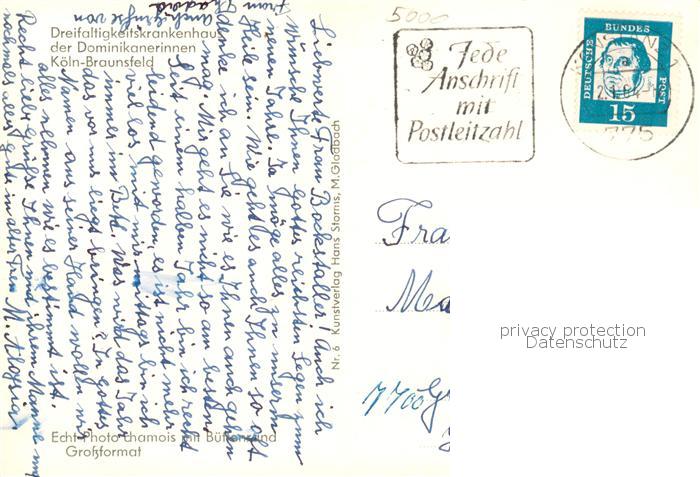 Dreifaltigkeitskrankenhaus
der Dominikanerinnen
Köln-Braunsfeld
Liebwerte Frau Bockstaller! Auch ich
wünsche Ihnen Gottes reichsten Segen zum
neuen Jahre. Ja möge alles zu unserem
Heile sein. Wie geht es auch Ihnen so oft
denke ich an Sie wie es Ihnen auch gehen
mag. Mir geht es nicht so am besten
Seit einem halben Jahr bin ich recht
leidend geworden, es ist nicht mehr
viel los mit mir, mittags bin ich
immer im Bett. Was wird das Jahr
das vor uns liegt bringen? In Gottes
Namen aus seiner Hand wollen wir
alles nehmen wie es bestimmt ist.
Recht liebe Grüße Ihnen und ihrem Manne
nochmals alles gute in alter Treu M.
Auch Grüße von
Echt Photo chamois mit Büttenrand
Großformat
Nr. 6 Kunstverlag Hans Storms, M.Gladbach
5000
Jede
Anschrift
mit
Postleitzahl
DEUTSCHE
BUNDES
POST
15
775
Fra
Ma
7700
privacy protection
Datenschutz